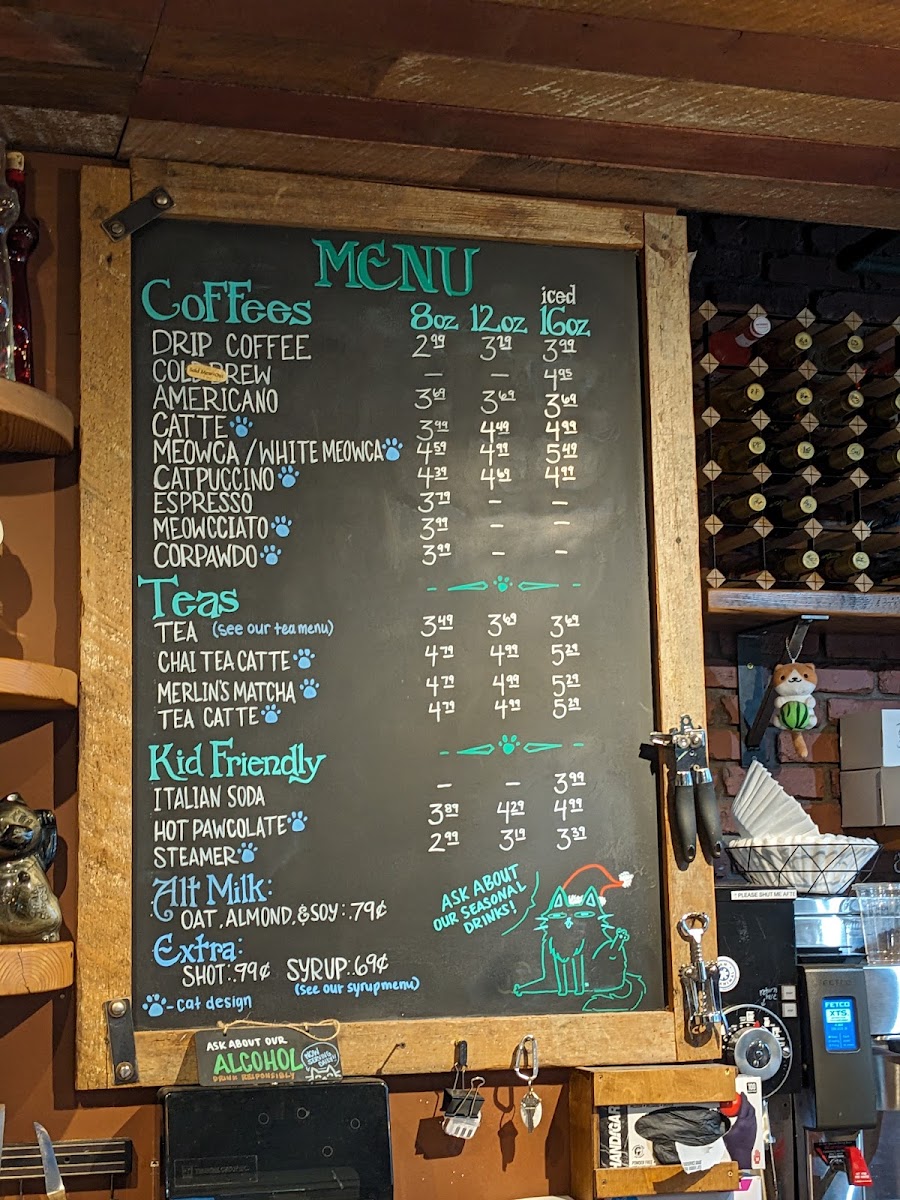 MENU
Coffees 8oz 12oz iced 16oz
DRIP COFFEE 2.99 3.29 3.99
COLD BREW – – 4.95
AMERICANO 3.69 3.69 3.69
CATTE 3.99 4.49 4.99
MEOWCA / WHITE MEOWCA 4.59 4.99 5.49
CATPUCCINO 4.39 4.69 4.99
ESPRESSO 3.79 – –
MEOWCCIATO 3.99 – –
CORPAWDO 3.99 – –
Teas
TEA (see our tea menu) 3.49 3.69 3.69
CHAI TEA CATTE 4.79 4.99 5.29
MERLIN'S MATCHA 4.79 4.99 5.29
TEA CATTE 4.79 4.99 5.29
Kid Friendly
ITALIAN SODA – – 3.99
HOT PAWCOLATE 3.89 4.29 4.99
STEAMER 2.99 3.19 3.39
Alt Milk:
OAT, ALMOND, & SOY: .79¢
Extra:
SHOT: .99¢ SYRUP: .69¢
(see our syrup menu)
- cat design
ASK ABOUT
OUR SEASONAL
DRINKS!
ASK ABOUT OUR
ALCOHOL
DRINK RESPONSIBLY
NOW SERVING
* PLEASE SHUT ME AFT
FETCO
XTS